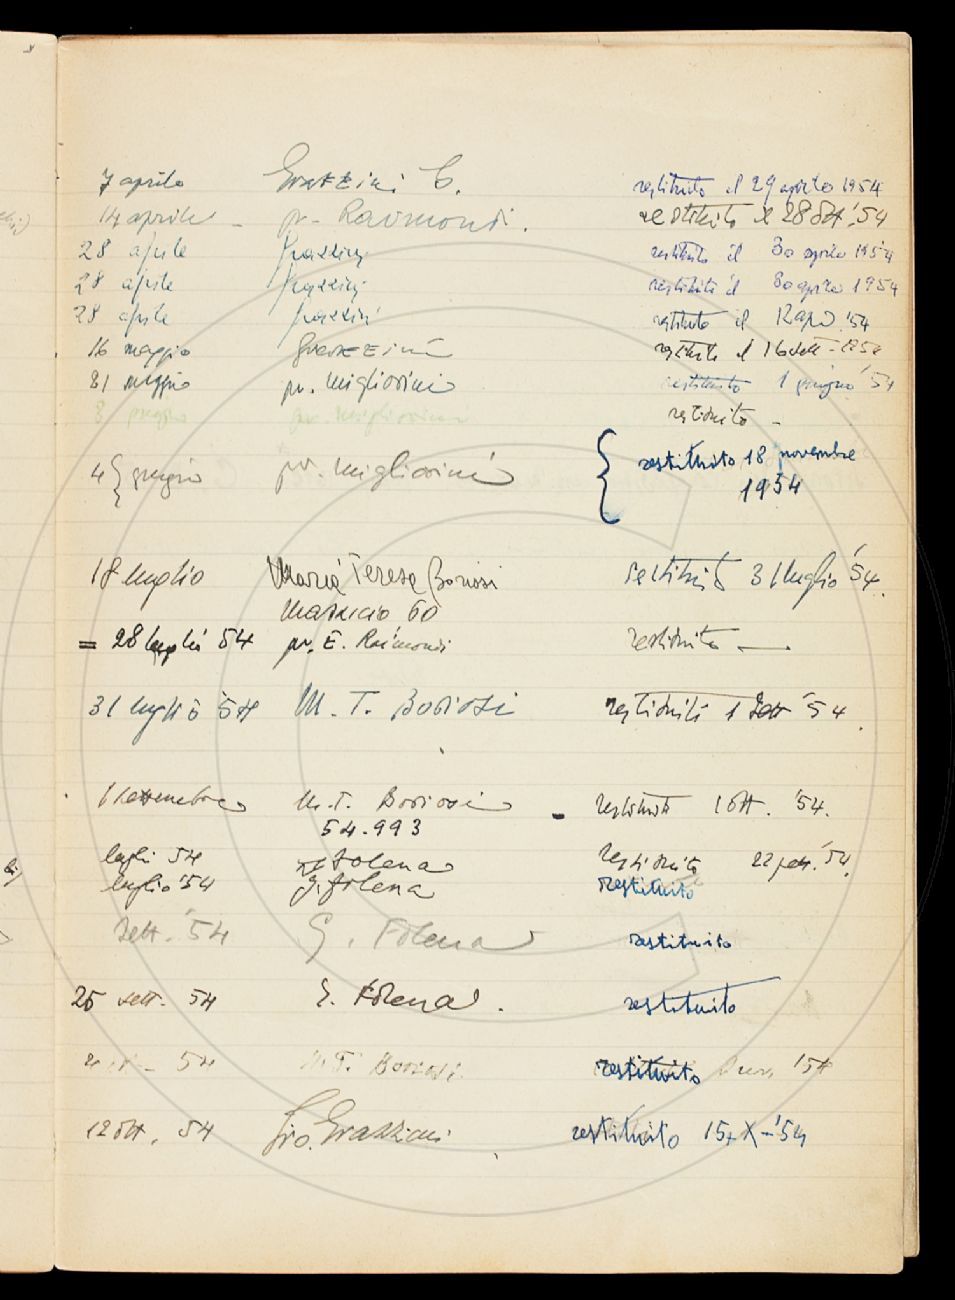 7 aprile Grazzini G. restituito il 29 aprile 1954
14 aprile - pr. Raimondi. restituito il 28 ott. '54
28 aprile restituito il 30 aprile 1954
28 aprile restituito il 30 aprile 1954
28 aprile restituito il '54
16 maggio Grazzini restituito il 16 sett. 1954
31 maggio pr. Migliorini restituito 1 giugno '54
8 giugno pr. Migliorini restituito -
4 { giugno pr. Migliorini { restituito 18 novembre
1954
18 luglio Maria Teresa restituito 31 luglio '54.
60
= 28 luglio 54 pr. E. Raimondi restituito —
31 luglio '54 M. T. restituito 1 sett '54.
1 settembre M. T. restituito 1 ott. '54.
54.993
luglio 54 Folena restituito 22 sett. '54.
luglio '54 G. Folena restituito
Sett. '54 G. Folena restituito
25 sett. 54 G. Folena. restituito
54 M. T. restituito '54
12 ott. 54 Gio. Grazzini restituito 15-X-'54